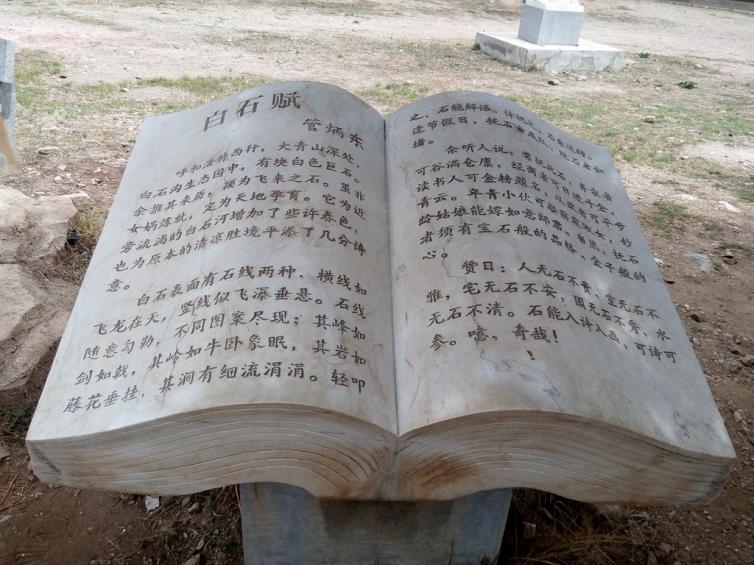 白石赋
管炳东
呼和浩特西行，大青山深处，
白石沟生态园中，有块白色巨石。虽非
余推其来历，颇为飞来之石。
女娲炼就，定为天地孕育。它为近
旁流淌的白石河增加了些许春色，
也为原本的清凉胜境平添了几分诗
意。
白石表面有石线两种，横线如
飞龙在天，竖线似飞瀑垂悬。石线
随意勾勒，不同图案尽现；其峰如
剑如戟，其岭如牛卧象眠，其岩如
藤花垂挂，其涧有细流涓涓。轻叩
之，石能解语。
逢节假日，抚石者成队，观石者如
堵。
余听人说，常抚此石，养殖者
可谷满仓廪，经商者可日进斗金，
读书人可金榜题名，从政者可平步
青云。年青小伙可娶窈窕淑女，妙
龄姑娘能嫁如意郎君。当然，抚石
者须有宝石般的品格，金子般的
心。
赞曰：人无石不贵，室无石不
雅，宅无石不安，园无石不秀，水
无石不清。石能入诗入画，可诗可
参。噫，奇哉！